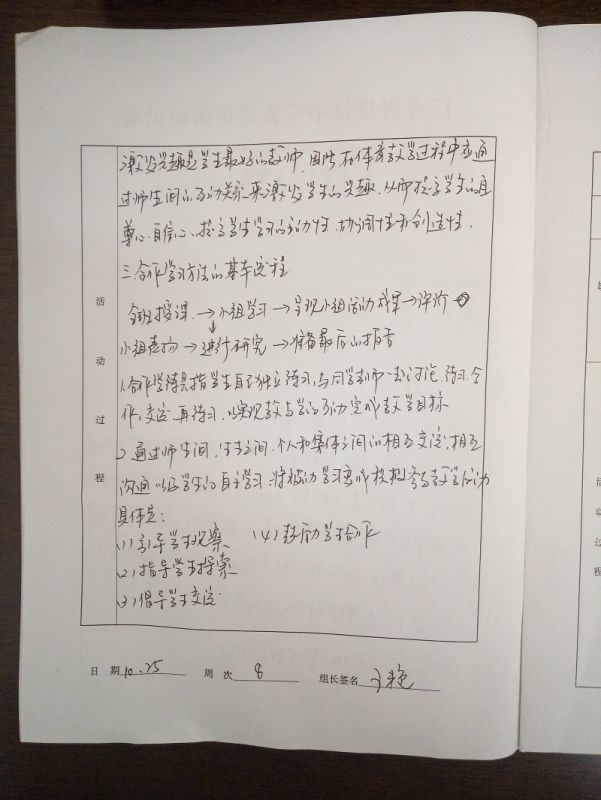 激发兴趣是学生最好的教师,因此,在体育教学过程中应通
过师生间的互动关系来激发学生的兴趣,从而提高学生的自
尊心、自信心,提高学生学习的主动性、协调性和创造性。
三.合作学习方法的基本流程
全班授课.→小组学习→呈现小组活动成果→评价
小组表扬→进行研究→准备最后的报告
1.合作学习是指学生自己独立练习,与同学教师一起讨论,练习,合
作,交流,再练习,以实现教与学的互动完成教学目标
2.通过师生间,生生之间,个人和集体之间的相互交流,相互
沟通 以学生的自主学习,将被动学习变成积极参与教学活动
具体是:
(1)引导学生观察 (4)鼓励学生合作
(2)指导学生探索
(3)倡导学生交流
活动过程
日 期 10.25 周 次 8 组长签名
活
动
过
程